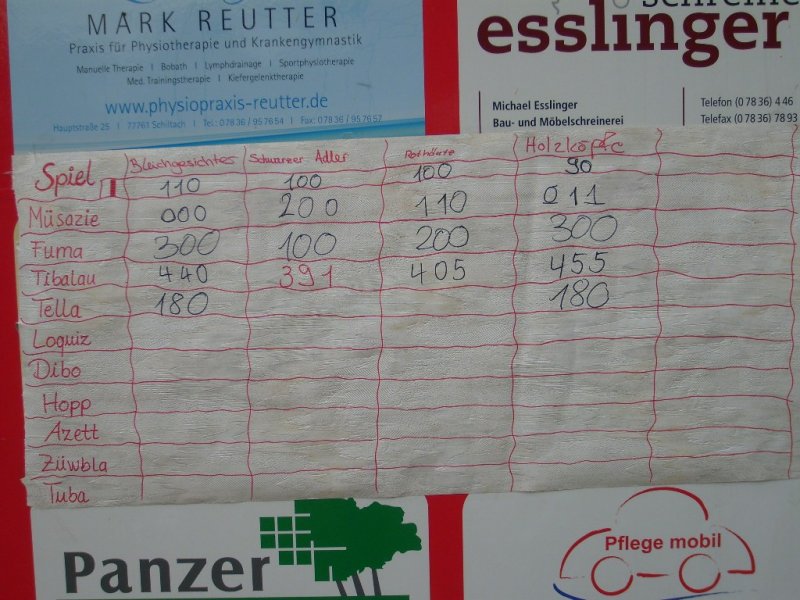 MARK REUTTER
Praxis für Physiotherapie und Krankengymnastik
Manuelle Therapie | Bobath | Lymphdrainage | Sportphysiotherapie
Med. Trainingstherapie | Kiefergelenktherapie
www.physiopraxis-reutter.de
Hauptstraße 25 | 77761 Schiltach | Tel.: 0 78 36 / 95 76 54 | Fax: 0 78 36 / 95 76 57
esslinger
Michael Esslinger
Bau- und Möbelschreinerei
Telefon (0 78 36) 4 46
Telefax (0 78 36) 78 93
Spiel Blechgesichter Schwarzer Adler Rothäute Holzköpfe
110 100 100 90
Müsazie 000 200 110 011
Fuma 300 100 200 300
Tibalau 440 391 405 455
Tella 180 180
Loquiz
Dibo
Hopp
Azett
Züwbla
Tuba
Panzer
Pflege mobil